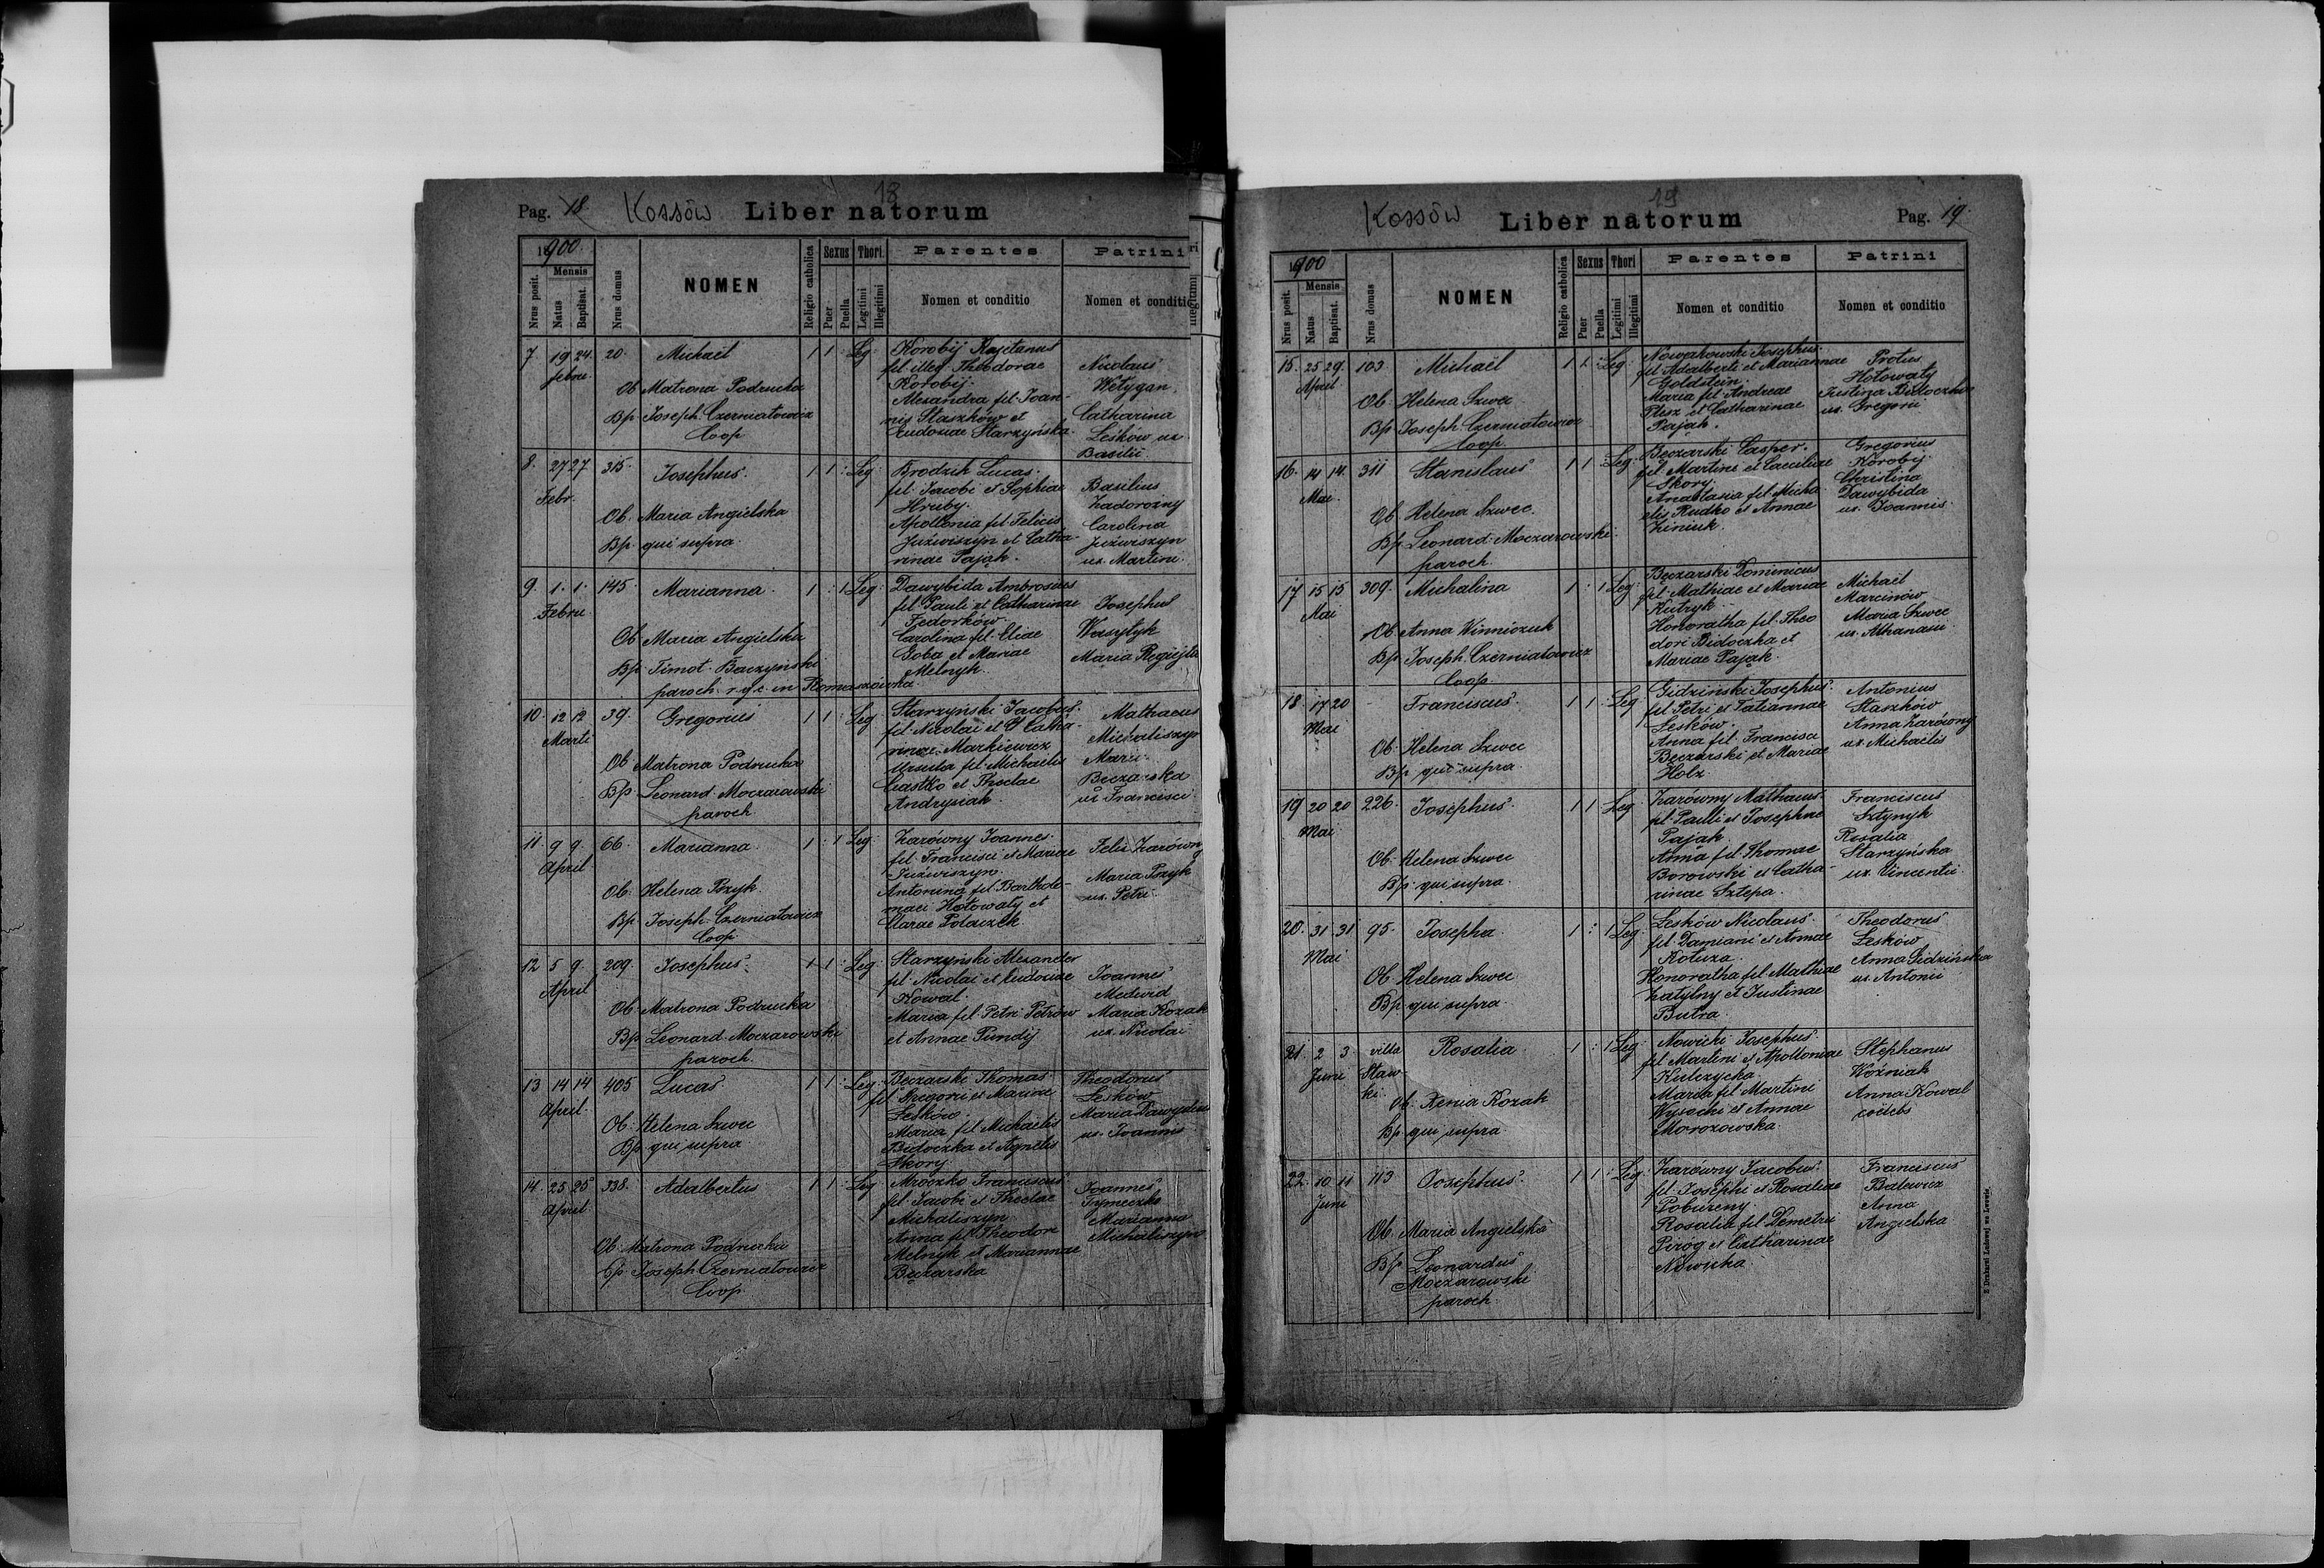 18
Pag. 18 Kossów Liber natorum
1900
Nrus posit.
Mensis
Natus
Baptisat.
Nrus domus
NOMEN
Religio catholica
Sexus
Puer
Puella
Thori
Legitimi
Illegitimi
Parentes
Nomen et conditio
Patrini
Nomen et conditio
7. 19 24. 20. Michaël 1 1 : Leg.
Febru.
Ob Matrona Podrucka
Bp Joseph Czerniatowicz
Coop.
Korobij Kajetanus
fil. illeg. Theodorae
Korobij.
Alexandra fil. Joan-
nis Staszków et
Eudoxiae Starzyńska.
Nicolaus
Wetygan
Catharina
Leśków ux
Basilii.
8. 27 27 315. Josephus. 1 1 : Leg.
Febr.
Ob. Maria Angielska
Bp. qui supra.
Brodzik Lucas.
fil. Jacobi et Sophiae
Hruby.
Apollonia fil. Felicis
Juźwiszyn et Catha-
rinae Pająk.
Basilius
Zadorozny
Carolina
Juźwiszyn
ux. Martini.
9. 1. 1. 145. Marianna. 1 : 1 Leg.
Febru
Ob Maria Angielska
Bp. Timot. Baczyński
paroch. r. g. c. in
Dawybida Ambrosius
fil. Pauli et Catharinae
Fedorków.
Carolina fil. Eliae
Goba et Mariae
Melnyk.
Josephus
Wasylyk
Maria
10. 12 12 39. Gregorius 1 1 : Leg.
Marti
Ob Matrona Podrucka
Bp Leonard Moczarowski
paroch.
Starzyński Jacobus.
fil. Nicolai et Catha-
rinae Markiewicz
Ursula fil. Michaelis
Ciastko et Theclae
Andrysiak.
Mathaeus
Michaliszyn
Mari-
Beczarska
ux Francisci.
11. 9 9. 66. Marianna. 1 : 1 Leg.
April
Ob. Helena Pzyk.
Bp. Joseph Czerniatowicz
Coop.
Zarówny Joannes.
fil. Francisci et Mariae
Juźwiszyn.
Antonina fil. Bartholo-
maei Hotowaty et
Clarae Polaczek
Felix Zarówny
Maria Pzyk
ux. Petri.
12 5 9. 209. Josephus. 1 1 : Leg.
April
Ob Matrona Podrucka
Bp. Leonard Moczarowski
paroch.
Starzyński Alexander
fil. Nicolai et Eudoxiae
Kowal.
Maria fil. Petri Petrów
et Annae Pundij
Joannes
Medwid
Maria Kozak
ux. Nicolai
13 14 14 405 Lucas 1 1 : Leg.
April.
Ob. Helena Szwec
Bp. qui supra
Beczarski Thomas.
fil. Gregorii et Mariae
Leśków.
Maria fil. Michaëlis
Bidoczka et Agnetis
Skory
Theodorus
Leśków
Maria
ux. Joannis
14. 25 25 338. Adalbertus 1 1 : Leg
April
Ob. Matrona Podrucka
Bp Joseph Czerniatowicz
Coop
Mroczko Franciscus.
fil. Jacobi et Theclae
Michaliszyn.
Anna fil. Theodori
Melnyk et Mariannae
Beczarska
Joannes
Marianna
Michaliszyn
19
Kossów Liber natorum Pag. 19
1900
Nrus posit.
Mensis
Natus
Baptisat.
Nrus domus
NOMEN
Religio catholica
Sexus
Puer
Puella
Thori
Legitimi
Illegitimi
Parentes
Nomen et conditio
Patrini
Nomen et conditio
15. 25 29. 103 Michaël 1 1 : Leg.
April
Ob. Helena Szwec
Bp Joseph Czerniatowicz
Coop.
Nowakowski Josephus.
fil. Adalberti et Mariannae
Goldstein.
Maria fil. Andreae
Plesz et Catharinae
Pająk.
Protus
Hotowaty
Justina Bidoczka
ux. Gregorii
16. 14 14. 311 Stanislaus 1 1 : Leg.
Mai.
Ob Helena Szwec.
Bp Leonard Moczarowski.
paroch.
Beczarski Casper.
fil. Martini et Caeciliae
Skory.
Anastasia fil. Micha-
elis Rudko et Annae
Ziniuk.
Gregorius
Korobij
Christina
Dawybida
ux. Joannis.
17 15 15 309. Michalina 1 : 1 Leg.
Mai
Ob Anna Winniczuk
Bp Joseph Czerniatowicz
Coop
Beczarski Dominicus
fil. Mathiae et Mariae
Kutryk.
Honoratha fil. Theo
dori Bidoczka et
Mariae Pająk.
Michaël
Marcinów
Maria Szwec
ux. Athanasii
18. 17 20 - Franciscus. 1 1 : Leg.
Mai
Ob. Helena Szwec
Bp. qui supra.
Gidziński Josephus.
fil. Petri et Tatiannae
Leśków.
Anna fil. Francisci
Beczarski et Mariae
Holz.
Antonius
Staszków
Anna Zarówny
ux. Michaelis
19 20 20 226. Josephus. 1 1 Leg.
Mai
Ob. Helena Szwec
Bp. qui supra.
Zarówny Mathaeus.
fil. Pauli et Josephae
Pająk
Anna fil. Thomae
Borowski et Catha-
rinae Sztepa.
Franciscus
Sztynyk
Rosalia
Starzyńska
ux. Vincentii.
20. 31 31 95. Josepha. 1 : 1 Leg.
Mai
Ob. Helena Szwec
Bp. qui supra.
Leśków Nicolaus.
fil. Damiani et Annae
Kotuza.
Honoratha fil. Mathiae
Zatylny et Justinae
Butra.
Theodorus
Leśków
Anna Gidzińska
ux. Antonii
21. 2 3 villa Rosalia 1 : 1 Leg.
Juni Staw
ki.
Ob. Xenia Kozak
Bp. qui supra.
Nowicki Josephus.
fil. Martini et Apolloniae
Kulczycka.
Maria fil. Martini
Wysocki et Annae
Morozowska.
Stephanus
Woźniak
Anna Kowal
coelebs
22. 10 11 113 Josephus. 1 1 : Leg.
Juni
Ob. Maria Angielska
Bp Leonardus
Moczarowski
paroch.
Zarówny Jacobus.
fil. Josephi et Rosaliae
Pobureny.
Rosalia fil. Demetrii
Piróg et Catharinae
Nowicka.
Franciscus
Balewicz
Anna
Angielska
Z Drukarni Ludowej we Lwowie.